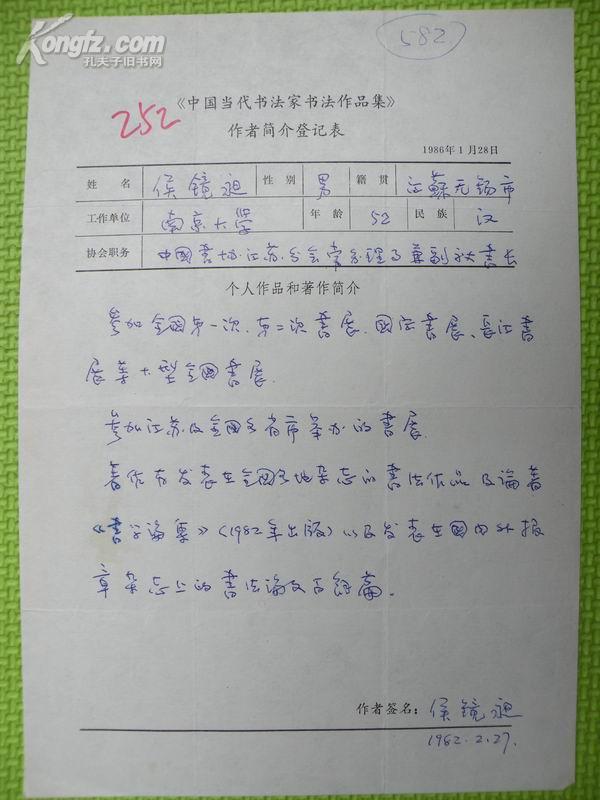 Kongfz.com
孔夫子旧书网
582
252
《中国当代书法家书法作品集》
作者简介登记表
1986年1月28日
姓名 侯镜昶 性别 男 籍贯 江蘇无锡市
工作单位 南京大学 年龄 52 民族 汉
协会职务 中國書协江苏分会常务理事兼副秘書长
个人作品和著作简介
参加全國第一次、第二次書展、國际書展、長江書
展等大型全國書展.
参加江苏及全國各省市举办的書展.
著作有发表在全国各地杂志的書法作品及論著
《書学論集》(1982年出版)以及发表在國内外报
章杂志上的書法論文百餘篇.
作者签名：侯镜昶
1982.2.27.